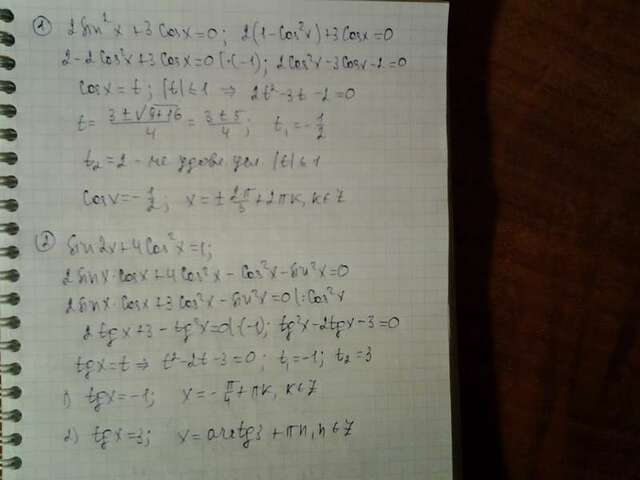 ① 2sin²x + 3cosx = 0; 2(1-cos²x)+3cosx=0
2-2cos²x+3cosx=0 |·(-1); 2cos²x-3cosx-2=0
cosx = t; |t| ≤ 1 ⇒ 2t²-3t-2=0
t = (3±√(9+16))/4 = (3±5)/4; t₁=-1/2
t₂=2 - не удовл. усл. |t| ≤ 1
cosx=-1/2; x=±2π/3+2πk, k∈Z
② sin2x+4cos²x=1;
2sinx·cosx+4cos²x-cos²x-sin²x=0
2sinx·cosx+3cos²x-sin²x=0 |:cos²x
2tgx+3-tg²x=0 |·(-1); tg²x-2tgx-3=0
tgx=t ⇒ t²-2t-3=0; t₁=-1; t₂=3
1) tgx=-1; x=-π/4+πk, k∈Z
2) tgx=3; x=arctg3+πn, n∈Z